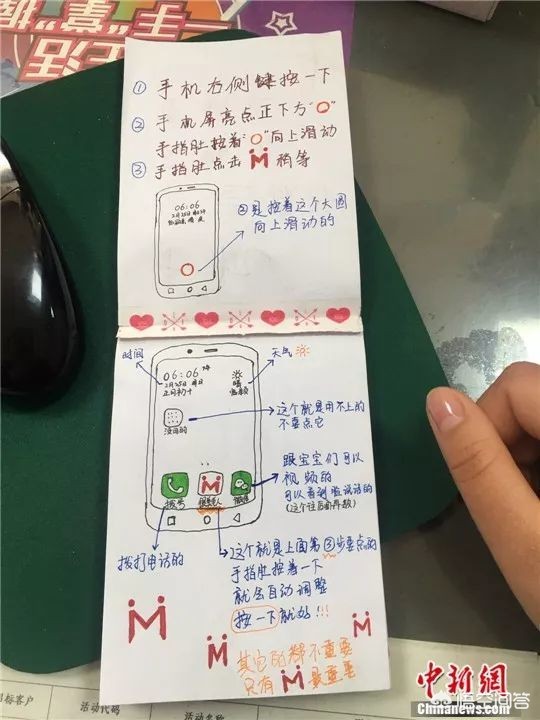 生活
二手"掌"握
① 手机右侧键按一下
② 手机屏亮点正下方"O"
手指肚按着"O"向上滑动
③ 手指肚点击 M 稍等
06:06
②是按着这个大圆
向上滑动的
时间
天气
06:06
2月25日
正月初十
晴
没用的
这个就是用不上的
不要点它
跟宝宝们可以
视频的
可以看到脸说话的
(这个往后面再教)
拨号
微信
拨打电话的
这个就是上面第③步要点的
手指肚按着一下
就会自动调整
按一下就好!!!
其它的都不重要
只有 M 最重要
招标客户
活动代码
活动名称
中新网
Chinanews.com
悟空问答